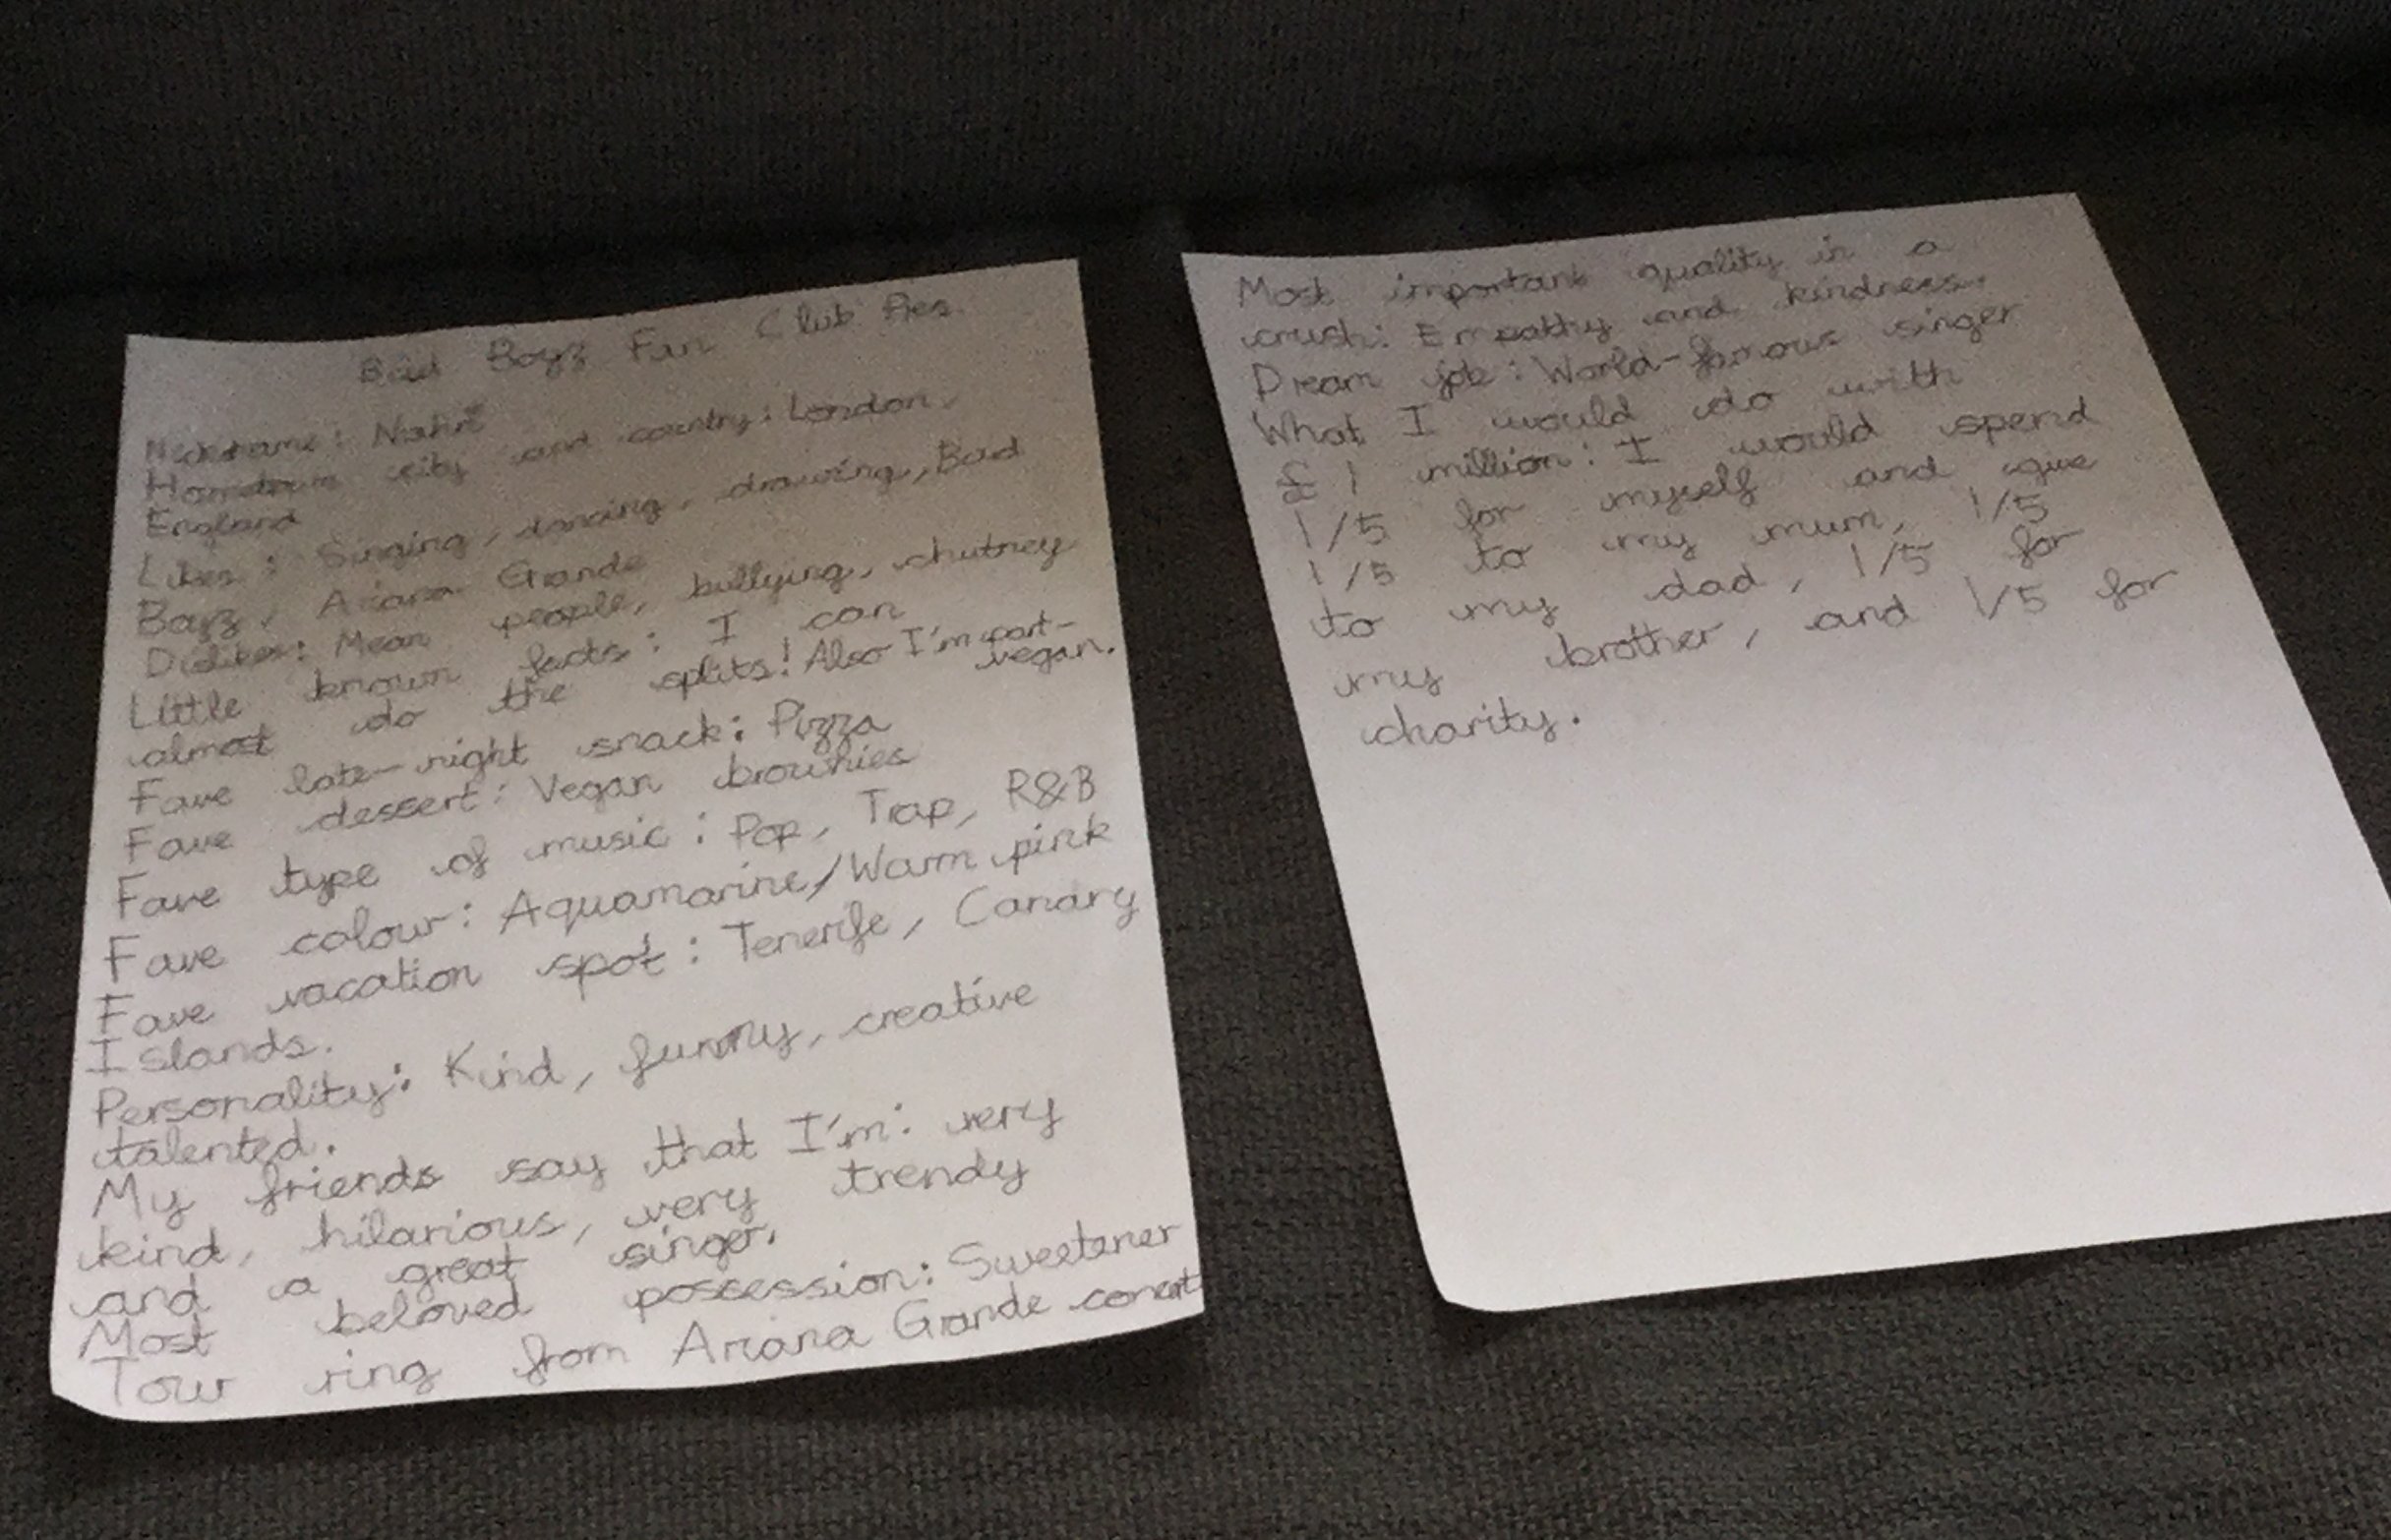 Bad Boyz Fan Club Pres.
Nickname:
Hometown city and country: London,
England
Likes: Singing, dancing, drawing, Bad
Boyz, Ariana Grande
Dislikes: Mean people, bullying, chutney
Little known facts: I can
almost do the splits! Also I'm part-
vegan.
Fave late-night snack: Pizza
Fave dessert: Vegan brownies
Fave type of music: Pop, Trap, R&B
Fave colour: Aquamarine/Warm pink
Fave vacation spot: Tenerife, Canary
Islands.
Personality: Kind, funny, creative
talented.
My friends say that I'm: very
kind, hilarious, very trendy
and a great singer.
Most beloved possession: Sweetener
Tour ring from Ariana Grande concert
Most important quality in a
crush: Empathy and kindness.
Dream job: World-famous singer
What I would do with
£1 million: I would spend
1/5 for myself and give
1/5 to my mum, 1/5
to my dad, 1/5 for
my brother, and 1/5 for
charity.